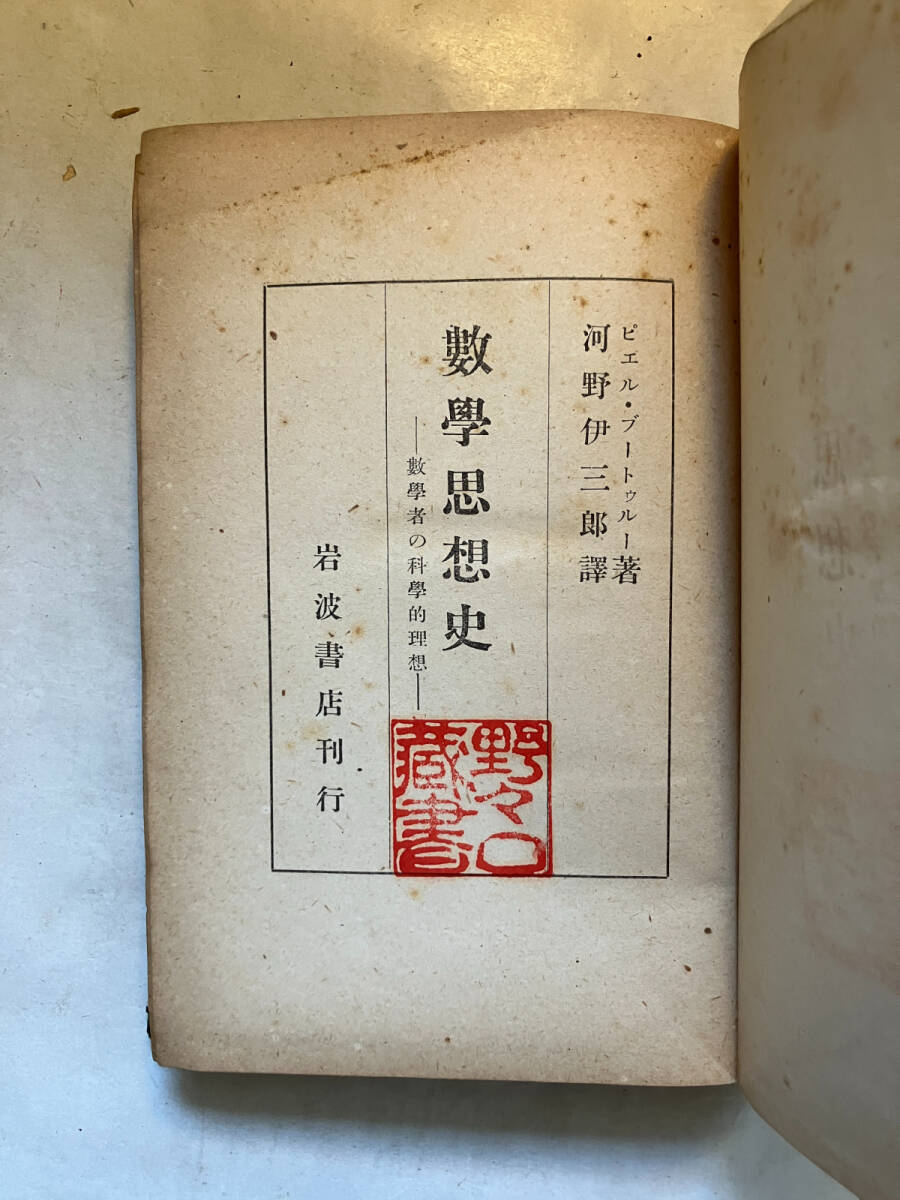 ピエル・ブートゥルー著
河野伊三郎譯
數學思想史
——數學者の科學的理想——
岩波書店刊行
野々口
藏書